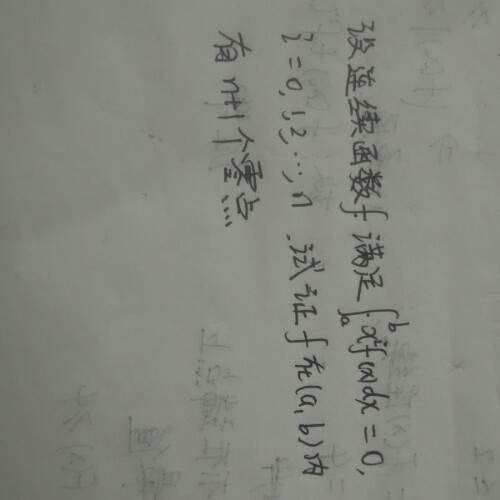 设连续函数f满足∫ₐᵇxⁱf(x)dx=0,
i=0,1,2,…,n.试证f在(a,b)内
有n+1个零点